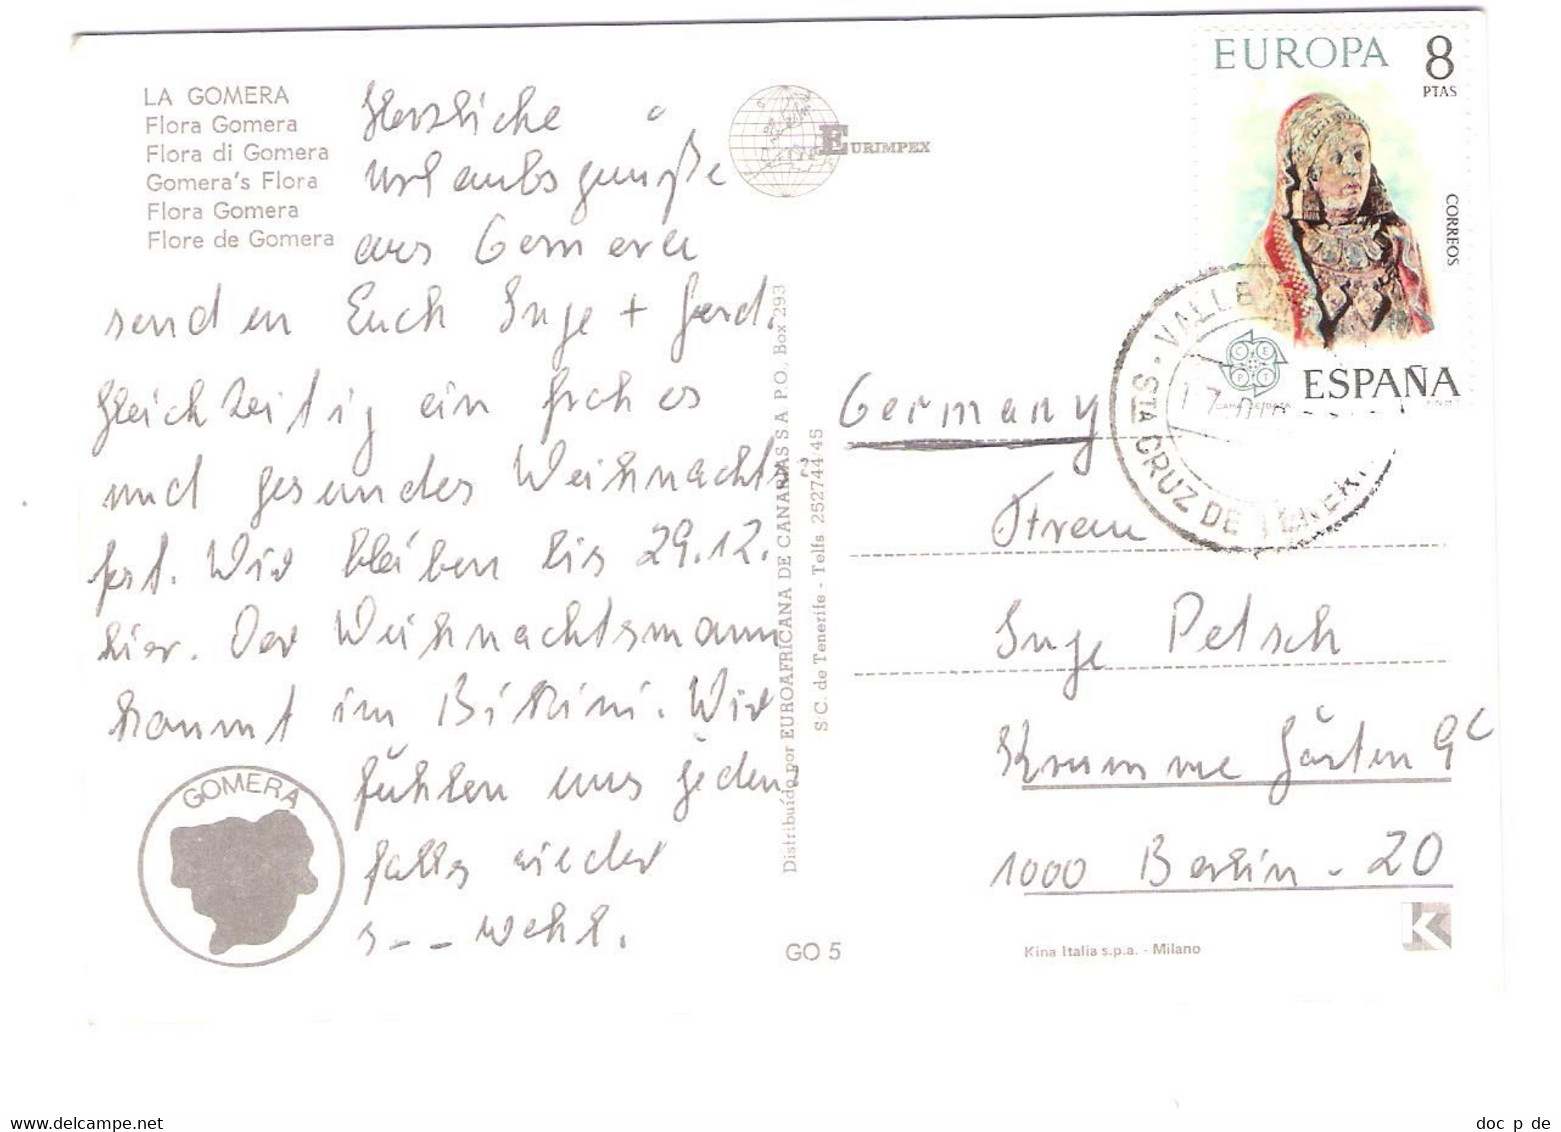 LA GOMERA
Flora Gomera
Flora di Gomera
Gomera's Flora
Flora Gomera
Flore de Gomera
Herzliche
Urlaubsgrüße
aus Gomera
senden Euch Inge + Gerd.
Gleichzeitig ein frohes
und gesundes Weihnachts-
fest. Wir bleiben bis 29.12.
hier. Der Weihnachtsmann
kommt im Bikini. Wir
fühlen uns jeden-
falls wieder
s-- wohl.
GOMERA
EURIMPEX
Distribuído por EUROAFRICANA DE CANARIAS S A P.O. Box 293
S/C. de Tenerife - Telfs. 252744-45
GO 5
EUROPA 8
PTAS
CORREOS
CEPT
ESPAÑA
VALLE
STA CRUZ DE TENERI
Germany
Frau
Inge Petsch
Krumme Gärten 9c
1000 Berlin - 20
Kina Italia s.p.a. - Milano
K
doc_p_de
www.delcampe.net